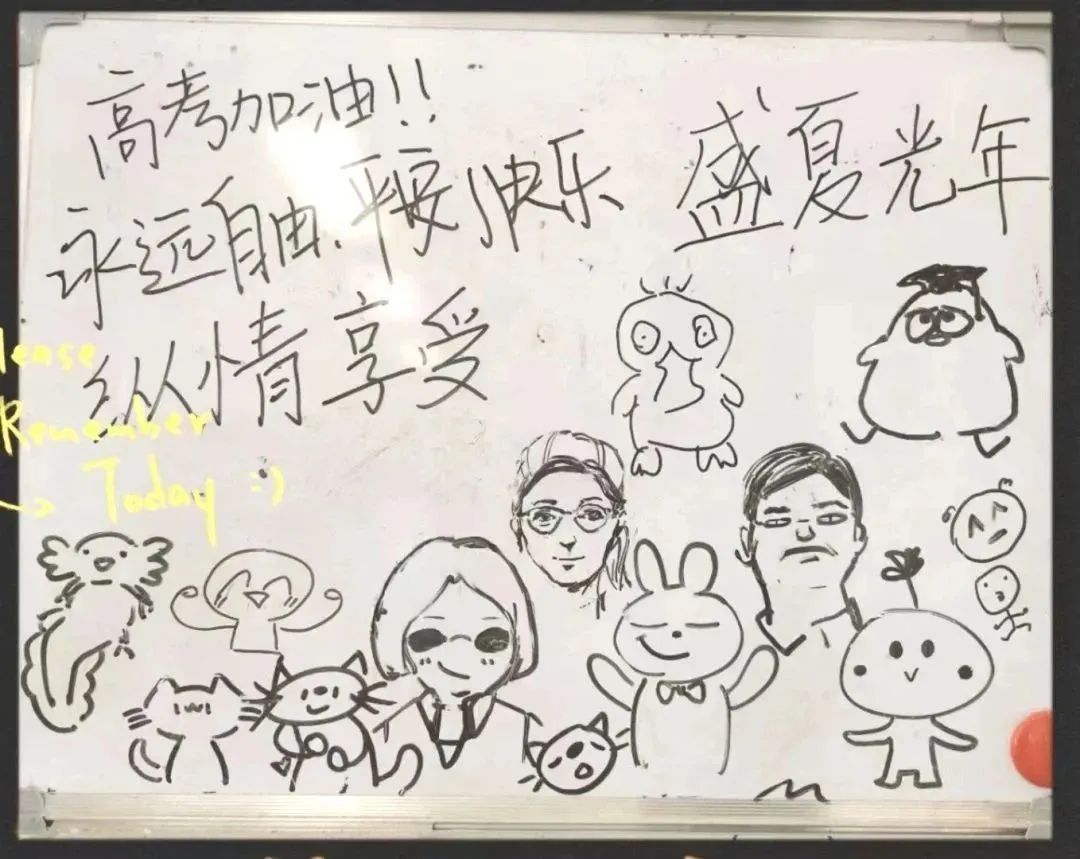 高考加油!!
永远自由、平安快乐
纵情享受
盛夏光年
Please
Remember
→ Today :)